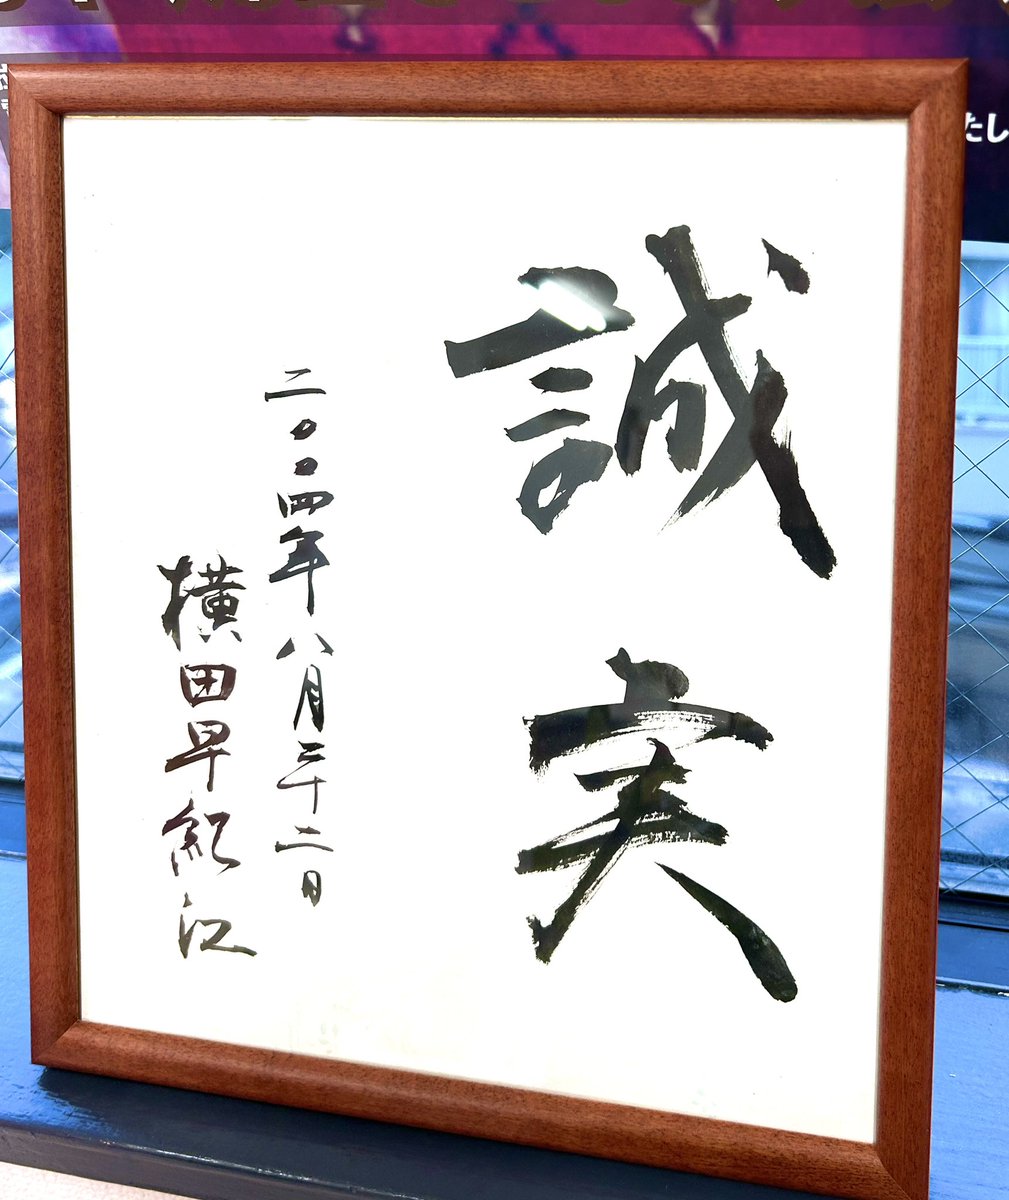 誠実
二〇〇四年八月二十二日
横田早紀江
たし